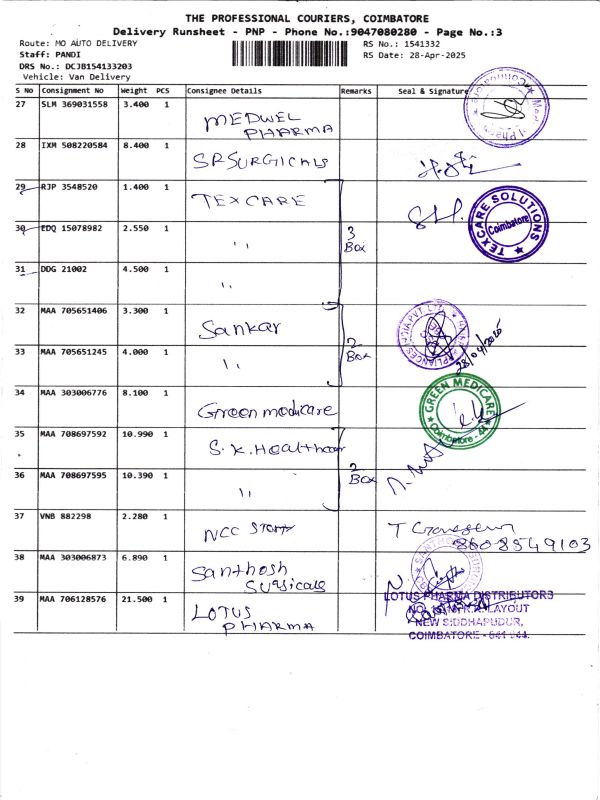 THE PROFESSIONAL COURIERS, COIMBATORE
Delivery Runsheet - PNP - Phone No.:9047080280 - Page No.:3
Route: MO AUTO DELIVERY
RS No.: 1541332
Staff: PANDI
RS Date: 28-Apr-2025
DRS No.: DCJB154133203
Vehicle: Van Delivery
S No Consignment No Weight PCS Consignee Details Remarks Seal & Signature
27 SLM 369031558 3.400 1 MEDWEL PHARMA
28 IXM 508220584 8.400 1 SR SURGICALS
29 RJP 3548520 1.400 1 TEXCARE
TEXCARE SOLUTIONS
Coimbatore
30 EDQ 15078982 2.550 1 " 3 Box
31 DDG 21002 4.500 1 "
32 MAA 705651406 3.300 1 Sankar
33 MAA 705651245 4.000 1 " 2 Box 28/04/2025
34 MAA 303006776 8.100 1 Green medicare
GREEN MEDICARE
Coimbatore - 44
35 MAA 708697592 10.990 1 S.K. Healthcare
36 MAA 708697595 10.390 1 " 2 Box
37 VNB 882298 2.280 1 NCC
8608549103
38 MAA 303006873 6.890 1 Santhosh Surgicals
39 MAA 706128576 21.500 1 LOTUS PHARMA
LOTUS PHARMA DISTRIBUTORS
LAYOUT
NEW SIDDHAPUDUR,
COIMBATORE - 641 044.